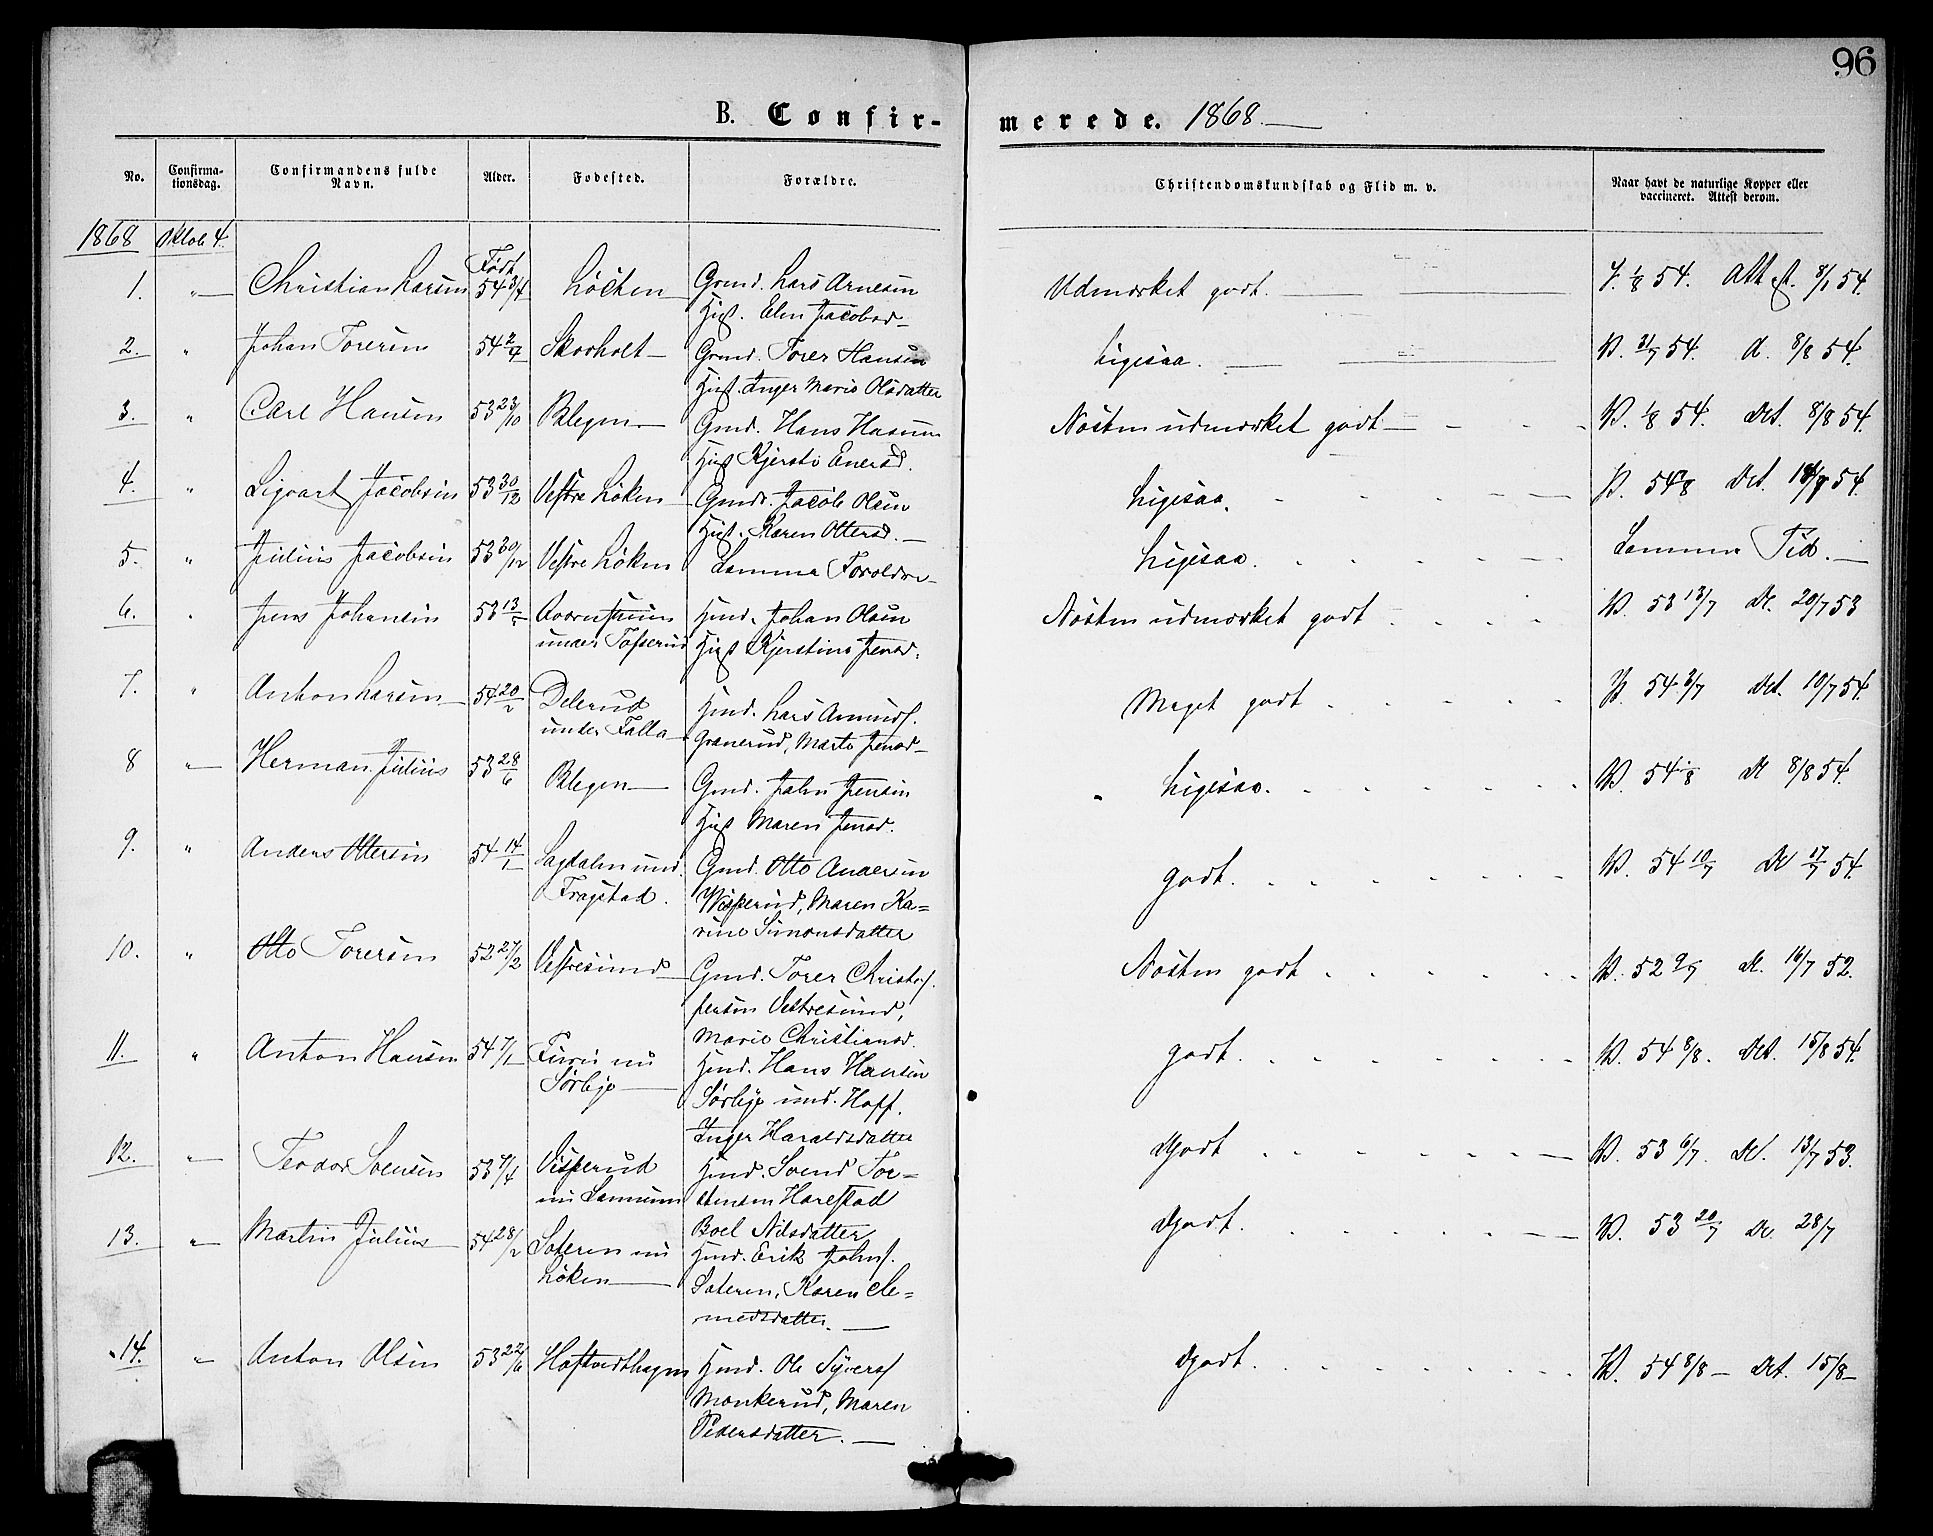 96
B. Confirmerede. 1868.
No.
Confirmationsdag.
Confirmandens fulde Navn.
Alder.
Fødested.
Forældre.
Christendomskundskab og Flid m. v.
Naar havt de naturlige Kopper eller vaccineret. Attest derom.
1868 Oktob 4.
Født
1. " Christian Larsen 54 3/4 Löcken Grmd. Lars Arnesen Udmærket godt. V. 1/8 54. Attest. 8/8 54.
Hust. Elen Jacobsd
2. " Johan Toresen 54 Skorholt Grmd. Torer Hansen Ligesaa. V. 31/7 54. A. 8/8 54.
Hust. Inger Marie Olsdatter
3. " Carl Hansen 53 23/10 Blegen Gmd. Hans Hansen Nästen udmærket godt V. 1/8 54. Att. 8/8 54.
Hust Kjersti Enersd.
4. " Sigvart Jacobsen 53 30/12 Vestre Löken Gmd. Jacob Olsen Ligesaa. V. 54 Att. 54.
Hust. Karen Ottersd.
5. " Julius Jacobsen 53 30/12 Vestre Löken Samme Forældre Ligesaa. Samme Tid.
6. " Jens Johansen 53 Hmd. Johan Olsen Nästen udmærket godt V. 53 13/7 At. 20/7 53
under Hust Kjerstine Jensd.
7. " Anton Larsen 54 20/2 Delerud Hmd. Lars Amunds. Meget godt V. 54 3/7 Att. 10/7 54.
under Falla Granerud, Marte Jensd
8 " Herman Julius 53 28/6 Blegen Gmd. John Jensen Ligesaa. V. 54 1/8 At 8/8 54.
Hust Maren Jensd.
9. " Anders Ottersen 54 14/1 Sagdalen und. Gmd. Otto Andersen godt. V. 54 10/7 At 17/7 54.
Fragstad. Visperud, Maren Ka=
rine Simonsdatter
10. " Otto Toresen 52 27/2 Vestresund Gmd. Torer Christof. Nästen godt V. 52 9/7 At. 16/7 52.
fersen Vestresund,
Marie Christiansd.
11. " Anton Hansen 54 7/1 Furu nu Hmd. Hans Hansen godt. V. 54 8/8. Att. 15/8 54.
Sørbye Sørbye und. Hoff.
Inger Haraldsdatter
12. " Teodor Svensen 53 7/4 Visperud Hmd. Svend Tor= Godt V. 53 6/7. At. 13/7 53.
nu stensen Harestad
Boel Nilsdatter
13. " Martin Julius 54 28/2 Sateren nu Hmd. Erik Johns. Godt. V. 53 20/7 At. 28/7
Löken Sateren, Karen Cle=
medsdatter
14. " Anton Olsen 53 22/6 Hoftvedthagen Hmd. Ole Syvers. Godt. V. 54 8/8 Att. 15/8
Monkerud, Maren
Pedersdatter.